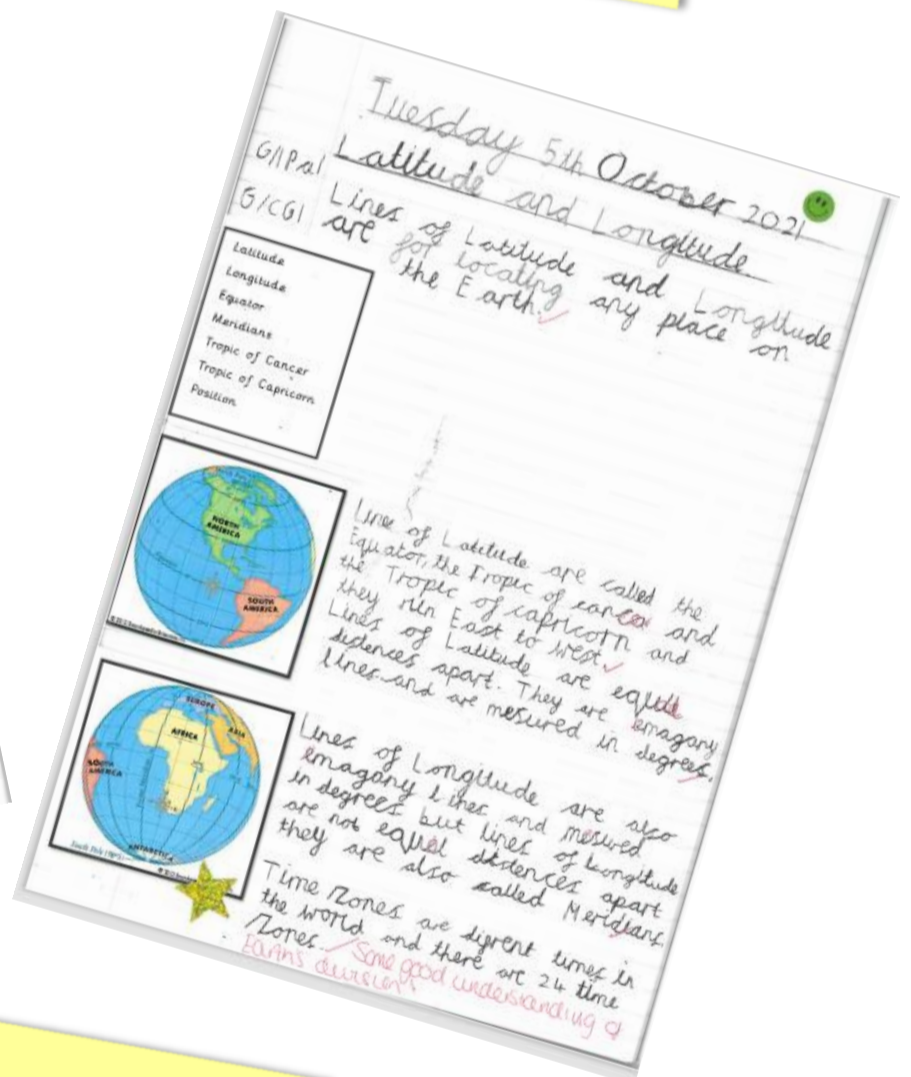 Tuesday 5th October 2021
G/IPal
Latitude and Longitude
G/CGI
Lines of Latitude and Longitude
are for locating any place on
the Earth.
Latitude
Longitude
Equator
Meridians
Tropic of Cancer
Tropic of Capricorn
Position
NORTH
AMERICA
SOUTH
AMERICA
Lines of Latitude are called the
Equator, the Tropic of cancer and
the Tropic of capricorn and
they run East to West.
Lines of Latitude are equal
distences apart. They are emagany
lines and are mesured in degrees.
EUROPE
ASIA
AFRICA
SOUTH
AMERICA
ANTARCTICA
Lines of Longitude are also
emagany lines and mesured
in degrees but lines of Longitude
are not equal distences apart
they are also called Meridians.
Time Zones are difrent times in
the world and there are 24 time
Zones.
Some good understanding of
Earth's divisions